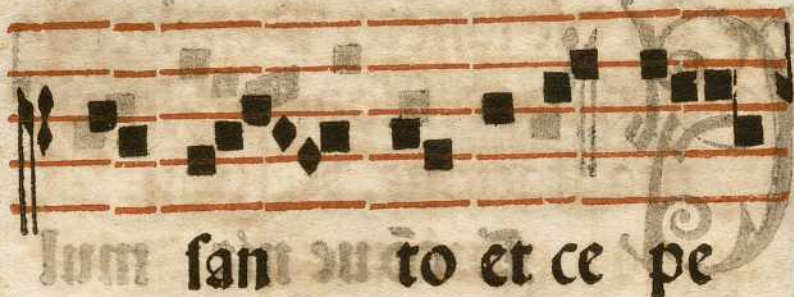 ſan to et ce pe